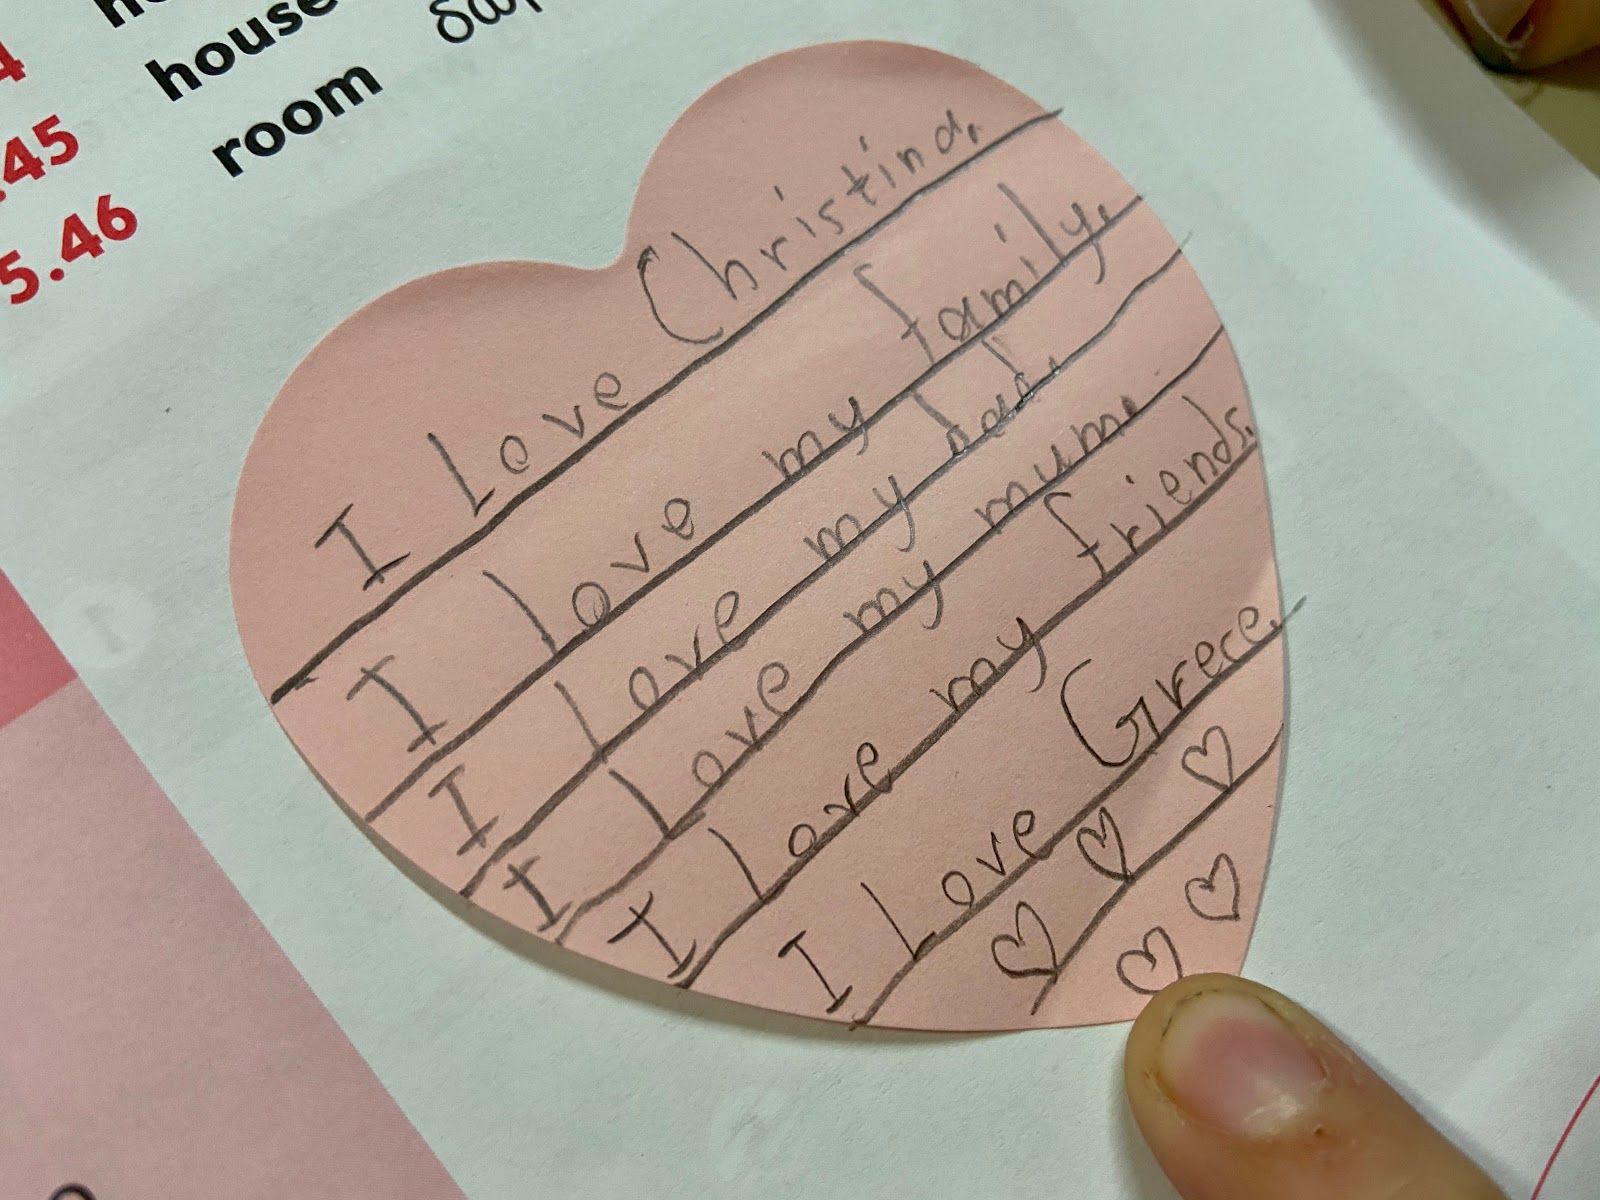 4
.45 house
5.46 room
I Love Christina.
I love my family.
I love my dad.
I Love my mum.
I Love my friends.
I Love Grece.